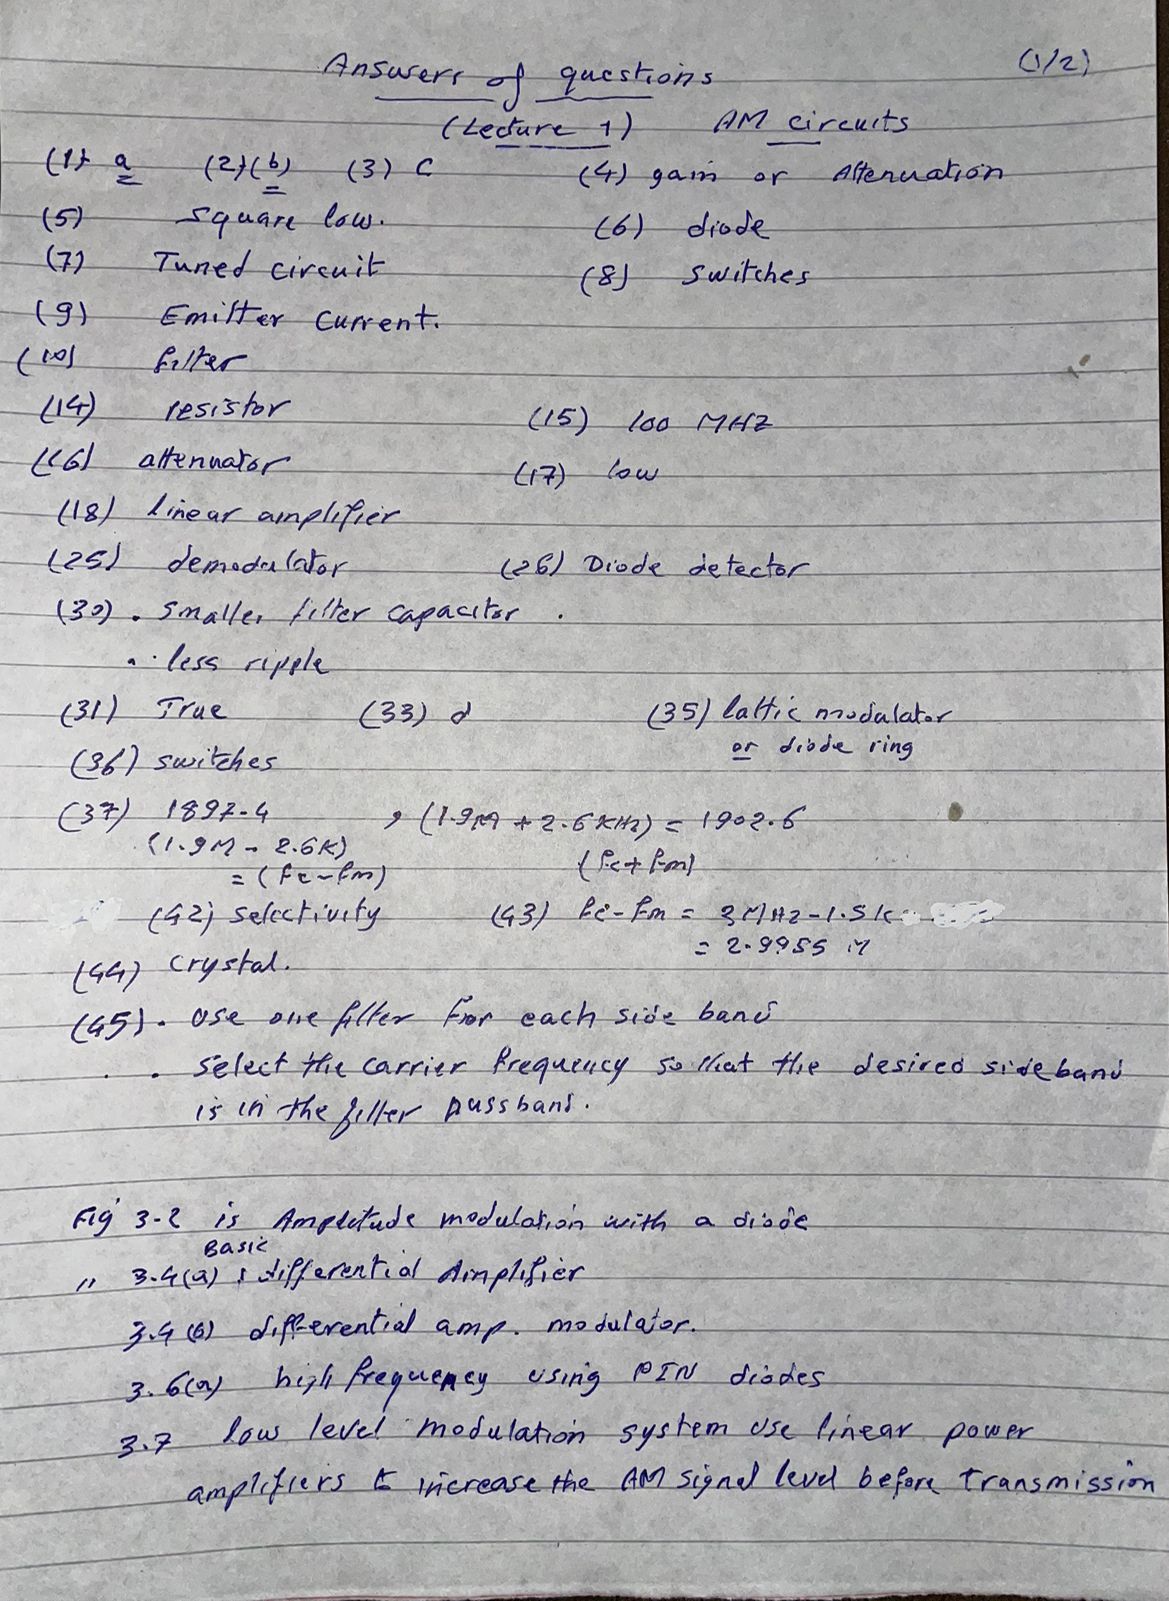 (1/2)
Answers of questions
(Lecture 1) AM circuits
(1) a (2) (b) (3) C (4) gain or Attenuation
(5) square low. (6) diode
(7) Tuned circuit (8) switches
(9) Emitter current.
(10) filter
(14) resistor (15) 100 MHZ
(16) attenuator (17) low
(18) linear amplifier
(25) demodulator (26) Diode detector
(30) . smaller filter capacitor .
. less ripple
(31) True (33) d (35) lattic modulator
or diode ring
(36) switches
(37) 1897.4 , (1.9M + 2.6KHz) = 1902.6
(1.9M - 2.6K) (fc + fm)
= (fc - fm)
(42) selectivity (43) fc - fm = 3MHz - 1.5k
= 2.9955 M
(44) crystal.
(45) . Use one filter for each side band
. select the carrier frequency so that the desired sideband
is in the filter passband.
Fig 3-2 is Amplitude modulation with a diode
Basic
" 3.4(a) : differential Amplifier
3.4 (b) differential amp. modulator.
3.6(a) high frequency using PIN diodes
3.7 low level modulation system use linear power
amplifiers to increase the AM signal level before transmission